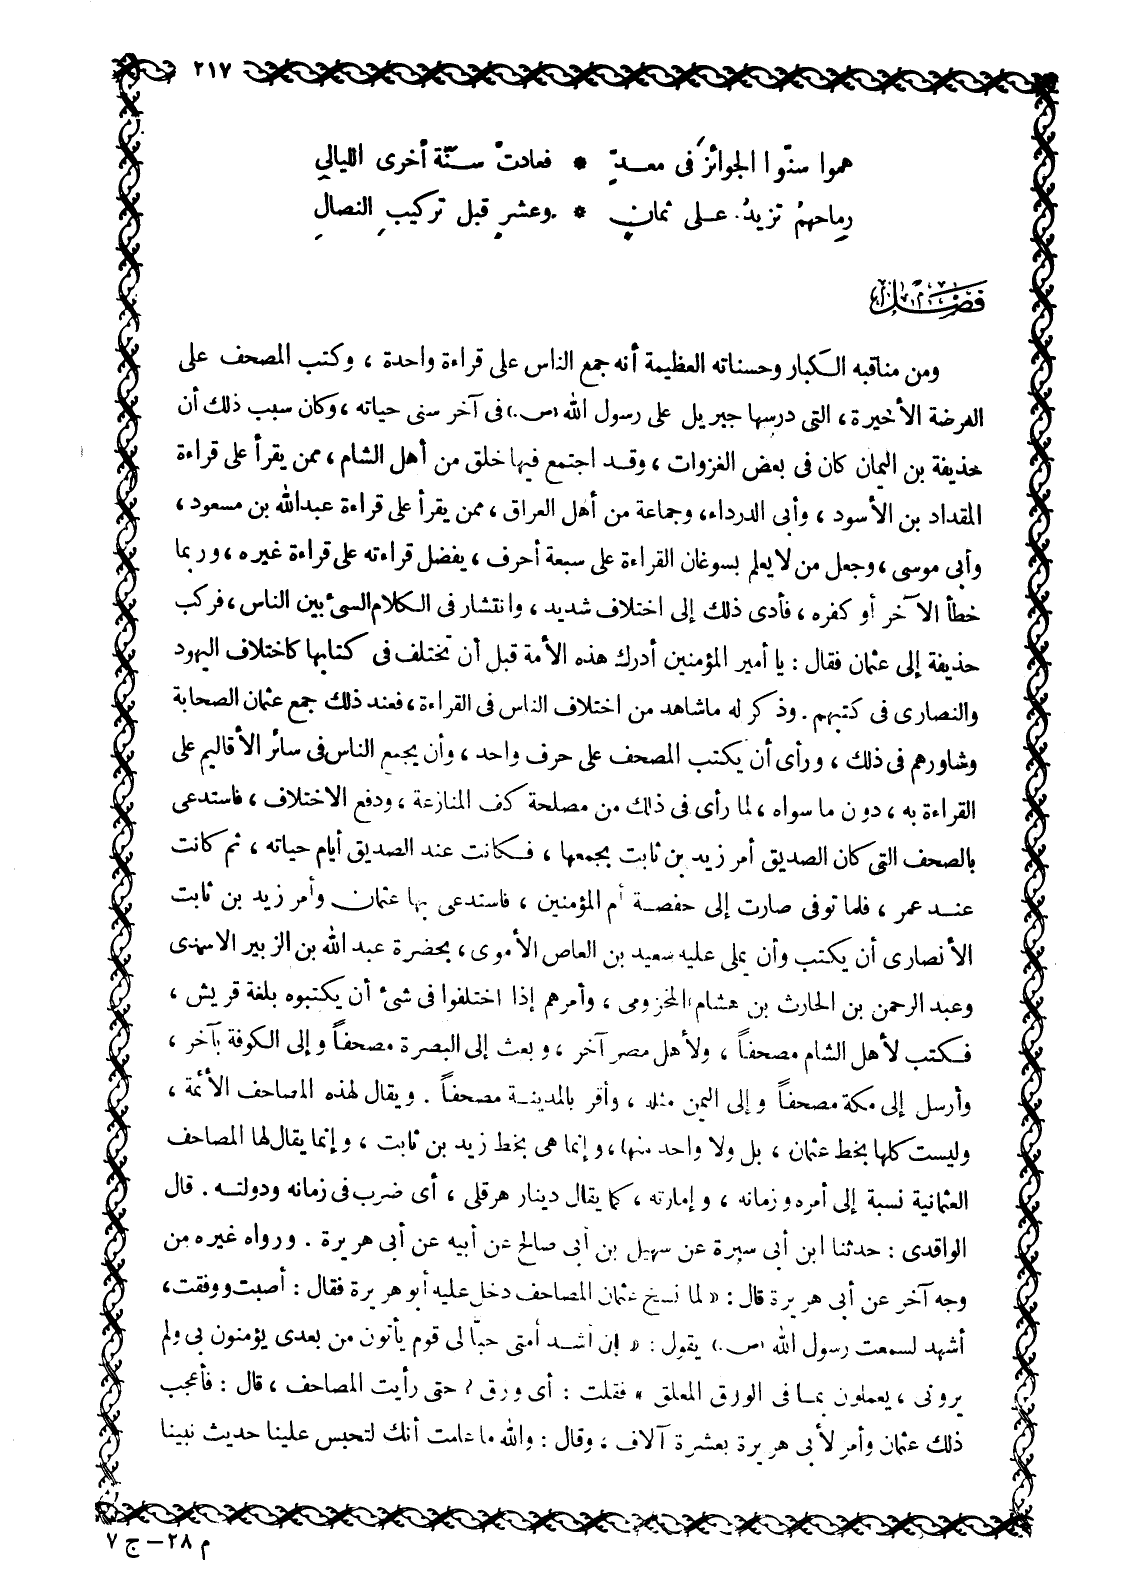 ٢١٧
هموا سنّوا الجوائزَ فى معـدٍّ * فعادتْ سـنّة أخرى الليالي
رماحهمُ تزيدُ علـى ثمانٍ * وعشرٍ قبل تركيبِ النصالِ
فصل
ومن مناقبه الكبار وحسناته العظيمة أنه جمع الناس على قراءة واحدة ، وكتب المصحف على
العرضة الأخيرة ، التى درسها جبريل على رسول الله (ص.) فى آخر سنى حياته ، وكان سبب ذلك أن
حذيفة بن اليمان كان فى بعض الغزوات ، وقد اجتمع فيها خلق من أهل الشام ، ممن يقرأ على قراءة
المقداد بن الأسود ، وأبى الدرداء، وجماعة من أهل العراق ، ممن يقرأ على قراءة عبدالله بن مسعود ،
وأبى موسى ، وجعل من لا يعلم بسوغان القراءة على سبعة أحرف ، يفضل قراءته على قراءة غيره ، وربما
خطأ الآخر أو كفره ، فأدى ذلك إلى اختلاف شديد ، وانتشار فى الكلام السئ بين الناس ، فركب
حذيفة إلى عثمان فقال : يا أمير المؤمنين أدرك هذه الأمة قبل أن تختلف فى كتابها كاختلاف اليهود
والنصارى فى كتبهم . وذكر له ماشاهد من اختلاف الناس فى القراءة ، فعند ذلك جمع عثمان الصحابة
وشاورهم فى ذلك ، ورأى أن يكتب المصحف على حرف واحد ، وأن يجمع الناس فى سائر الأقاليم على
القراءة به ، دون ما سواه ، لما رأى فى ذلك من مصلحة كف المنازعة ، ودفع الاختلاف ، فاستدعى
بالصحف التى كان الصديق أمر زيد بن ثابت بجمعها ، فكانت عند الصديق أيام حياته ، ثم كانت
عند عمر ، فلما توفى صارت إلى حفصة أم المؤمنين ، فاستدعى بها عثمان وأمر زيد بن ثابت
الأنصارى أن يكتب وأن يملى عليه سعيد بن العاص الأموى ، بحضرة عبد الله بن الزبير الاسدى
وعبد الرحمن بن الحارث بن هشام المخزومى ، وأمرهم إذا اختلفوا فى شئ أن يكتبوه بلغة قريش ،
فكتب لأهل الشام مصحفاً ، ولأهل مصر آخر ، وبعث إلى البصرة مصحفاً وإلى الكوفة بآخر ،
وأرسل إلى مكة مصحفاً وإلى اليمن مثله ، وأقر بالمدينة مصحفاً . ويقال لهذه المصاحف الأئمة ،
وليست كلها بخط عثمان ، بل ولا واحد منها ، وإنما هى بخط زيد بن ثابت ، وإنما يقال لها المصاحف
العثمانية نسبة إلى أمره وزمانه ، وإمارته ، كما يقال دينار هرقلى ، أى ضرب فى زمانه ودولته . قال
الواقدى : حدثنا ابن أبى سبرة عن سهيل بن أبى صالح عن أبيه عن أبى هريرة . ورواه غيره من
وجه آخر عن أبى هريرة قال : « لما نسخ عثمان المصاحف دخل عليه أبو هريرة فقال : أصبت ووفقت ،
أشهد لسمعت رسول الله (ص.) يقول : « إن أشد أمتى حبّا لى قوم يأتون من بعدى يؤمنون بى ولم
يرونى ، يعملون بما فى الورق المعلق » فقلت : أى ورق ؟ حتى رأيت المصاحف ، قال : فأعجب
ذلك عثمان وأمر لأبى هريرة بعشرة آلاف ، وقال : والله ما علمت أنك لتحبس علينا حديث نبينا
م ٢٨ – ج ٧